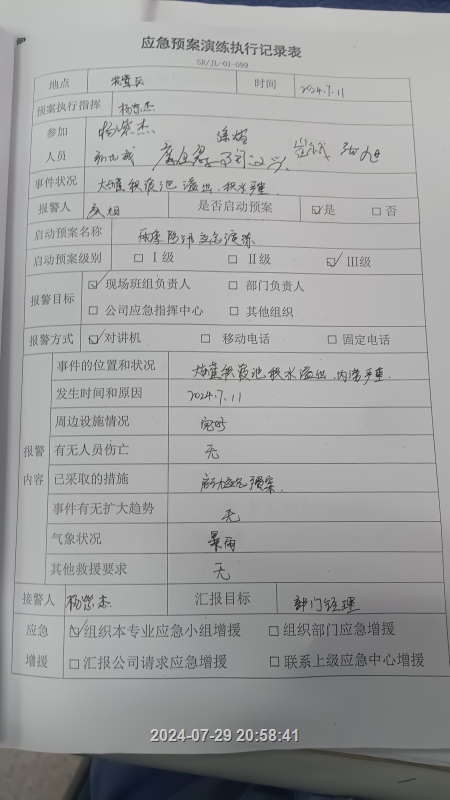 应急预案演练执行记录表
SR/JL-01-099
地点 时间 2024.7.11
预案执行指挥
参加
人员
事件状况 积液池溢出、积水严重
报警人 是否启动预案 ☑是 □否
启动预案名称 雨季防汛应急演练
启动预案级别 □Ⅰ级 □Ⅱ级 ☑Ⅲ级
报警目标 ☑现场班组负责人 □部门负责人
□公司应急指挥中心 □其他组织
报警方式 ☑对讲机 □移动电话 □固定电话
报警
内容
事件的位置和状况 积液池积水溢出、内涝严重.
发生时间和原因 2024.7.11
周边设施情况 完好
有无人员伤亡 无
已采取的措施 启动应急预案.
事件有无扩大趋势 无
气象状况 暴雨
其他救援要求 无
接警人 汇报目标 部门经理
应急
增援
☑组织本专业应急小组增援 □组织部门应急增援
□汇报公司请求应急增援 □联系上级应急中心增援
2024-07-29 20:58:41